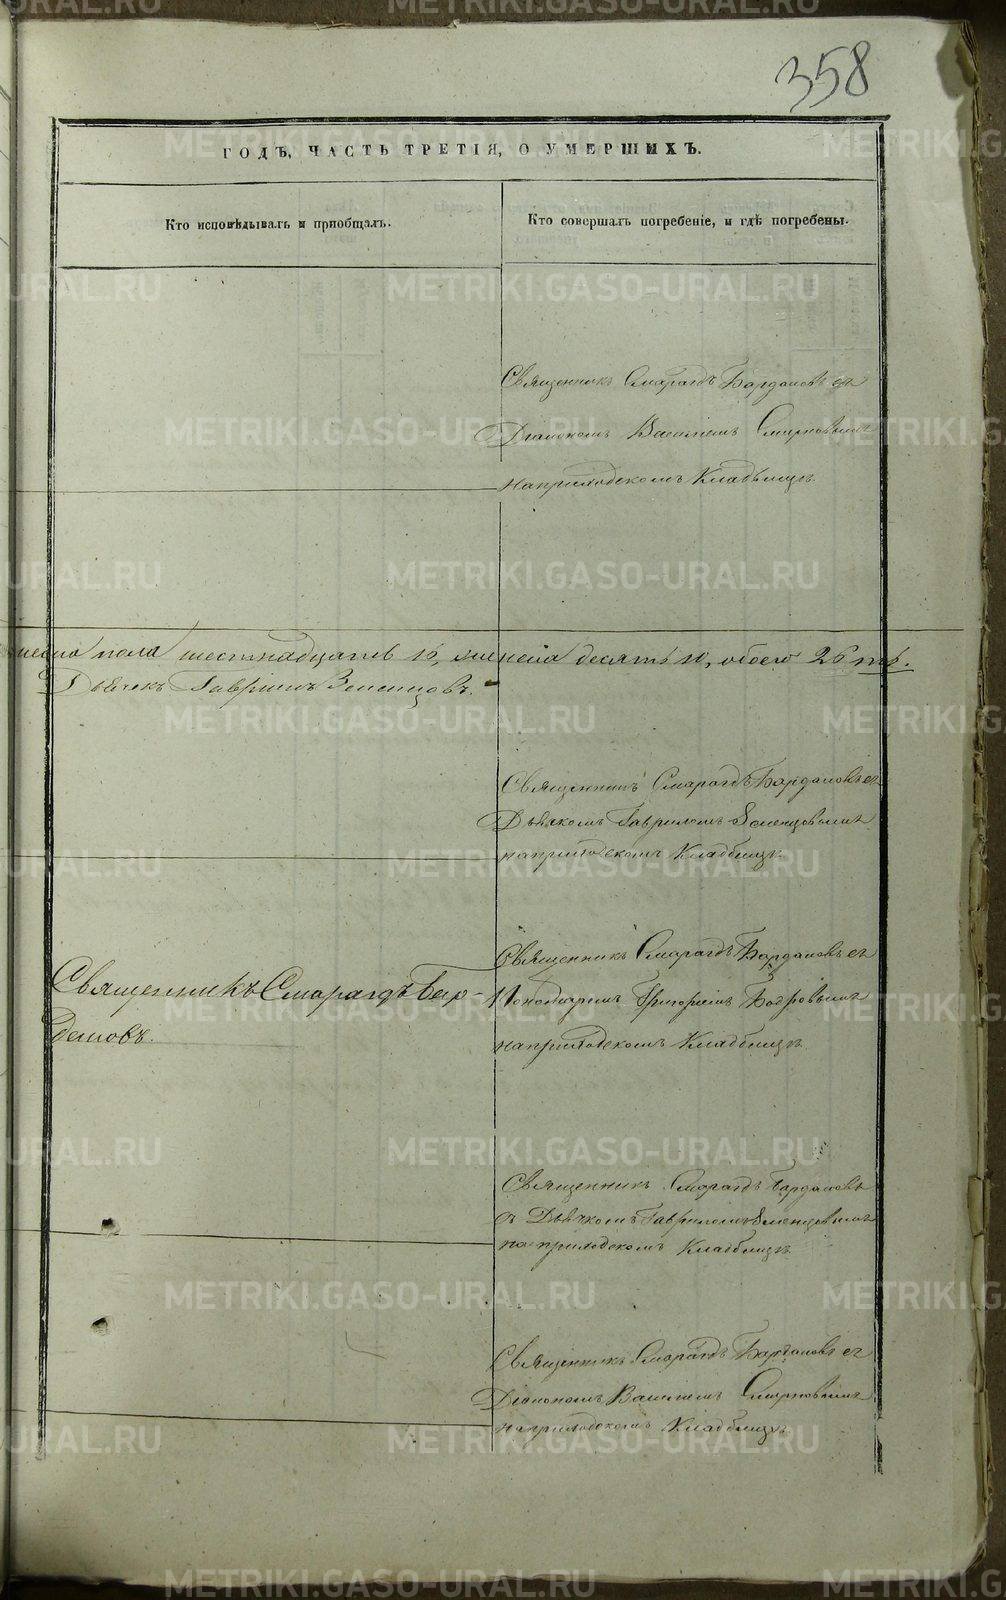 358
ГОДЪ, ЧАСТЬ ТРЕТІЯ, О УМЕРШИХЪ.
Кто исповѣдывалъ и пріобщалъ.
Кто совершалъ погребеніе, и гдѣ погребены.
Священникъ Смарагдъ Бардановъ съ
Діакономъ Василіемъ Смирновымъ
на приходскомъ Кладбищѣ
пола шестнадцать 16, женска десять 10, обоего 26
Дьячекъ Гавріилъ Зеленцовъ.
Священникъ Смарагдъ Бардановъ съ
Дьячкомъ Гавриломъ Зеленцовымъ
на приходскомъ Кладбищѣ
Священникъ Смарагдъ Бар-
дановъ.
Священникъ Смарагдъ Бардановъ съ
Пономаремъ Григоріемъ Бобровымъ
на приходскомъ Кладбищѣ
Священникъ Смарагдъ Бардановъ
съ Дьячкомъ Гавриломъ Зеленцовымъ
на приходскомъ Кладбищѣ
Священникъ Смарагдъ Бардановъ съ
Діакономъ Василіемъ Смирновымъ
на приходскомъ Кладбищѣ
METRIKI.GASO-URAL.RU